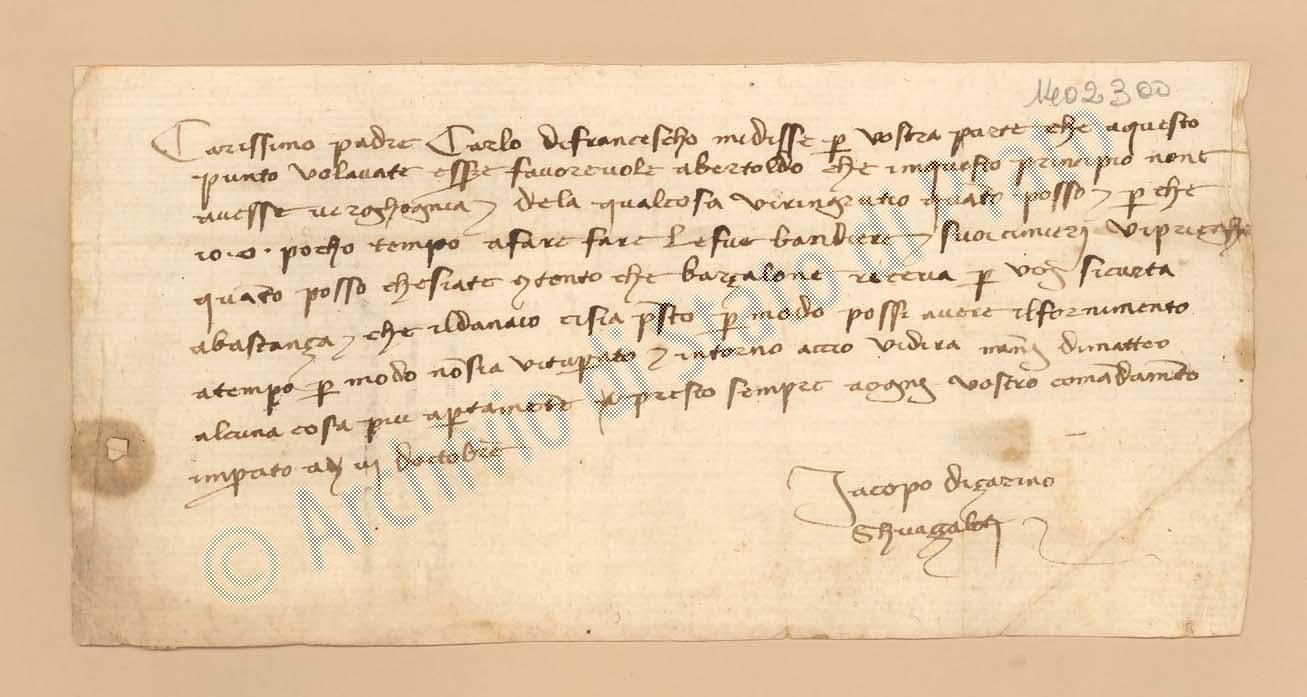 1402300
Carissimo padre Carlo difrancescho midisse p vostra parte che aquesto
punto volavate esse favorevole abertoldo che inquesto principio none
avesse verghognia e dela qualcosa viringratio quāto posso e p che
io.o. pocho tempo afare fare lesue bandiere e suoi cimieri viprieghο
quāto posso chesiate 9tento che barzalone riceva p voi sicurta
abastanza e che ildanaio cisia psto p modo possi avere ilfornimento
atempo p modo nōsia vitupato e intorno accio vidira nāni dimatteo
alcuna cosa piu aptamēte presto sempre aogni vostro comādamēto
imprato adi iii dottobre
Jacopo dizarino
Ghuazaloti
© Archivio di Stato di Prato